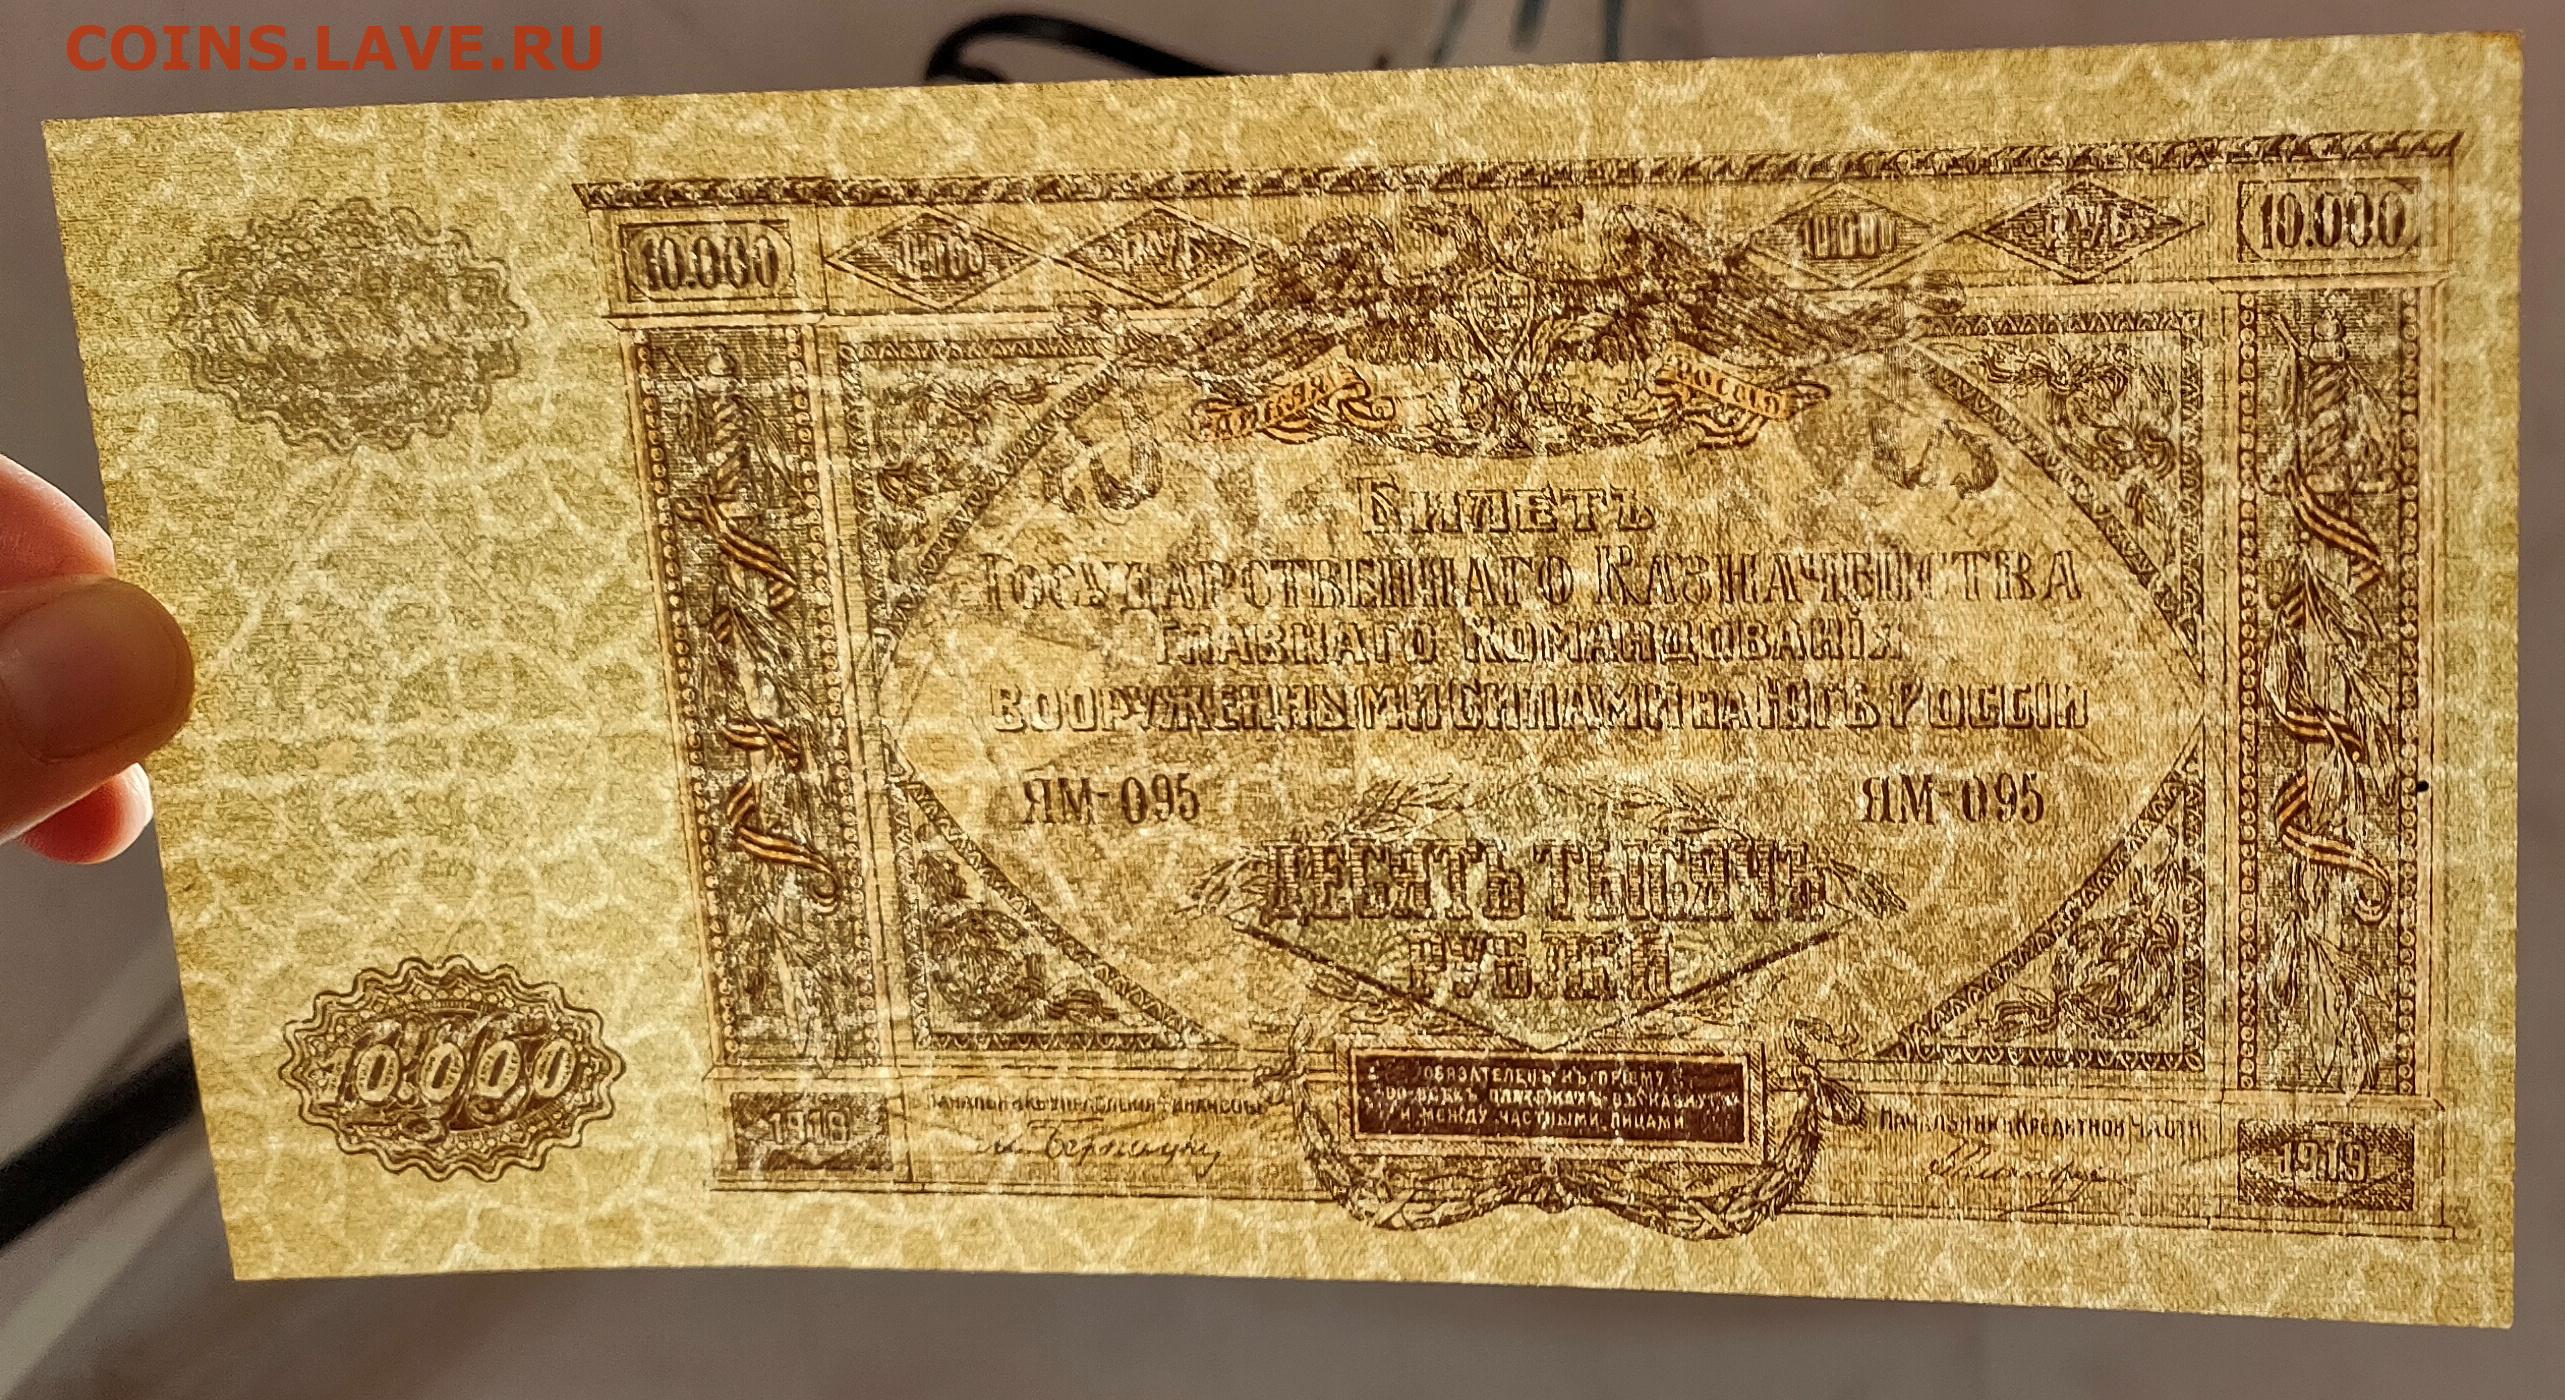 COINS.LAVE.RU
10.000 РУБ. 10.000 РУБ. 10.000
РОССІЯ
Билетъ
Государственнаго Казначейства
главнаго командованія
вооруженными силами на Югѣ Россіи
ЯМ-095 ЯМ-095
ДЕСЯТЬ ТЫСЯЧЪ
РУБЛЕЙ
10.000
ОБЯЗАТЕЛЕНЪ КЪ ПРІЕМУ
ВО ВСѢХЪ ПЛАТЕЖАХЪ ВЪ КАЗНУ
И МЕЖДУ ЧАСТНЫМИ ЛИЦАМИ
1919 Начальникъ Управленія Финансовъ Начальникъ Кредитной Части 1919